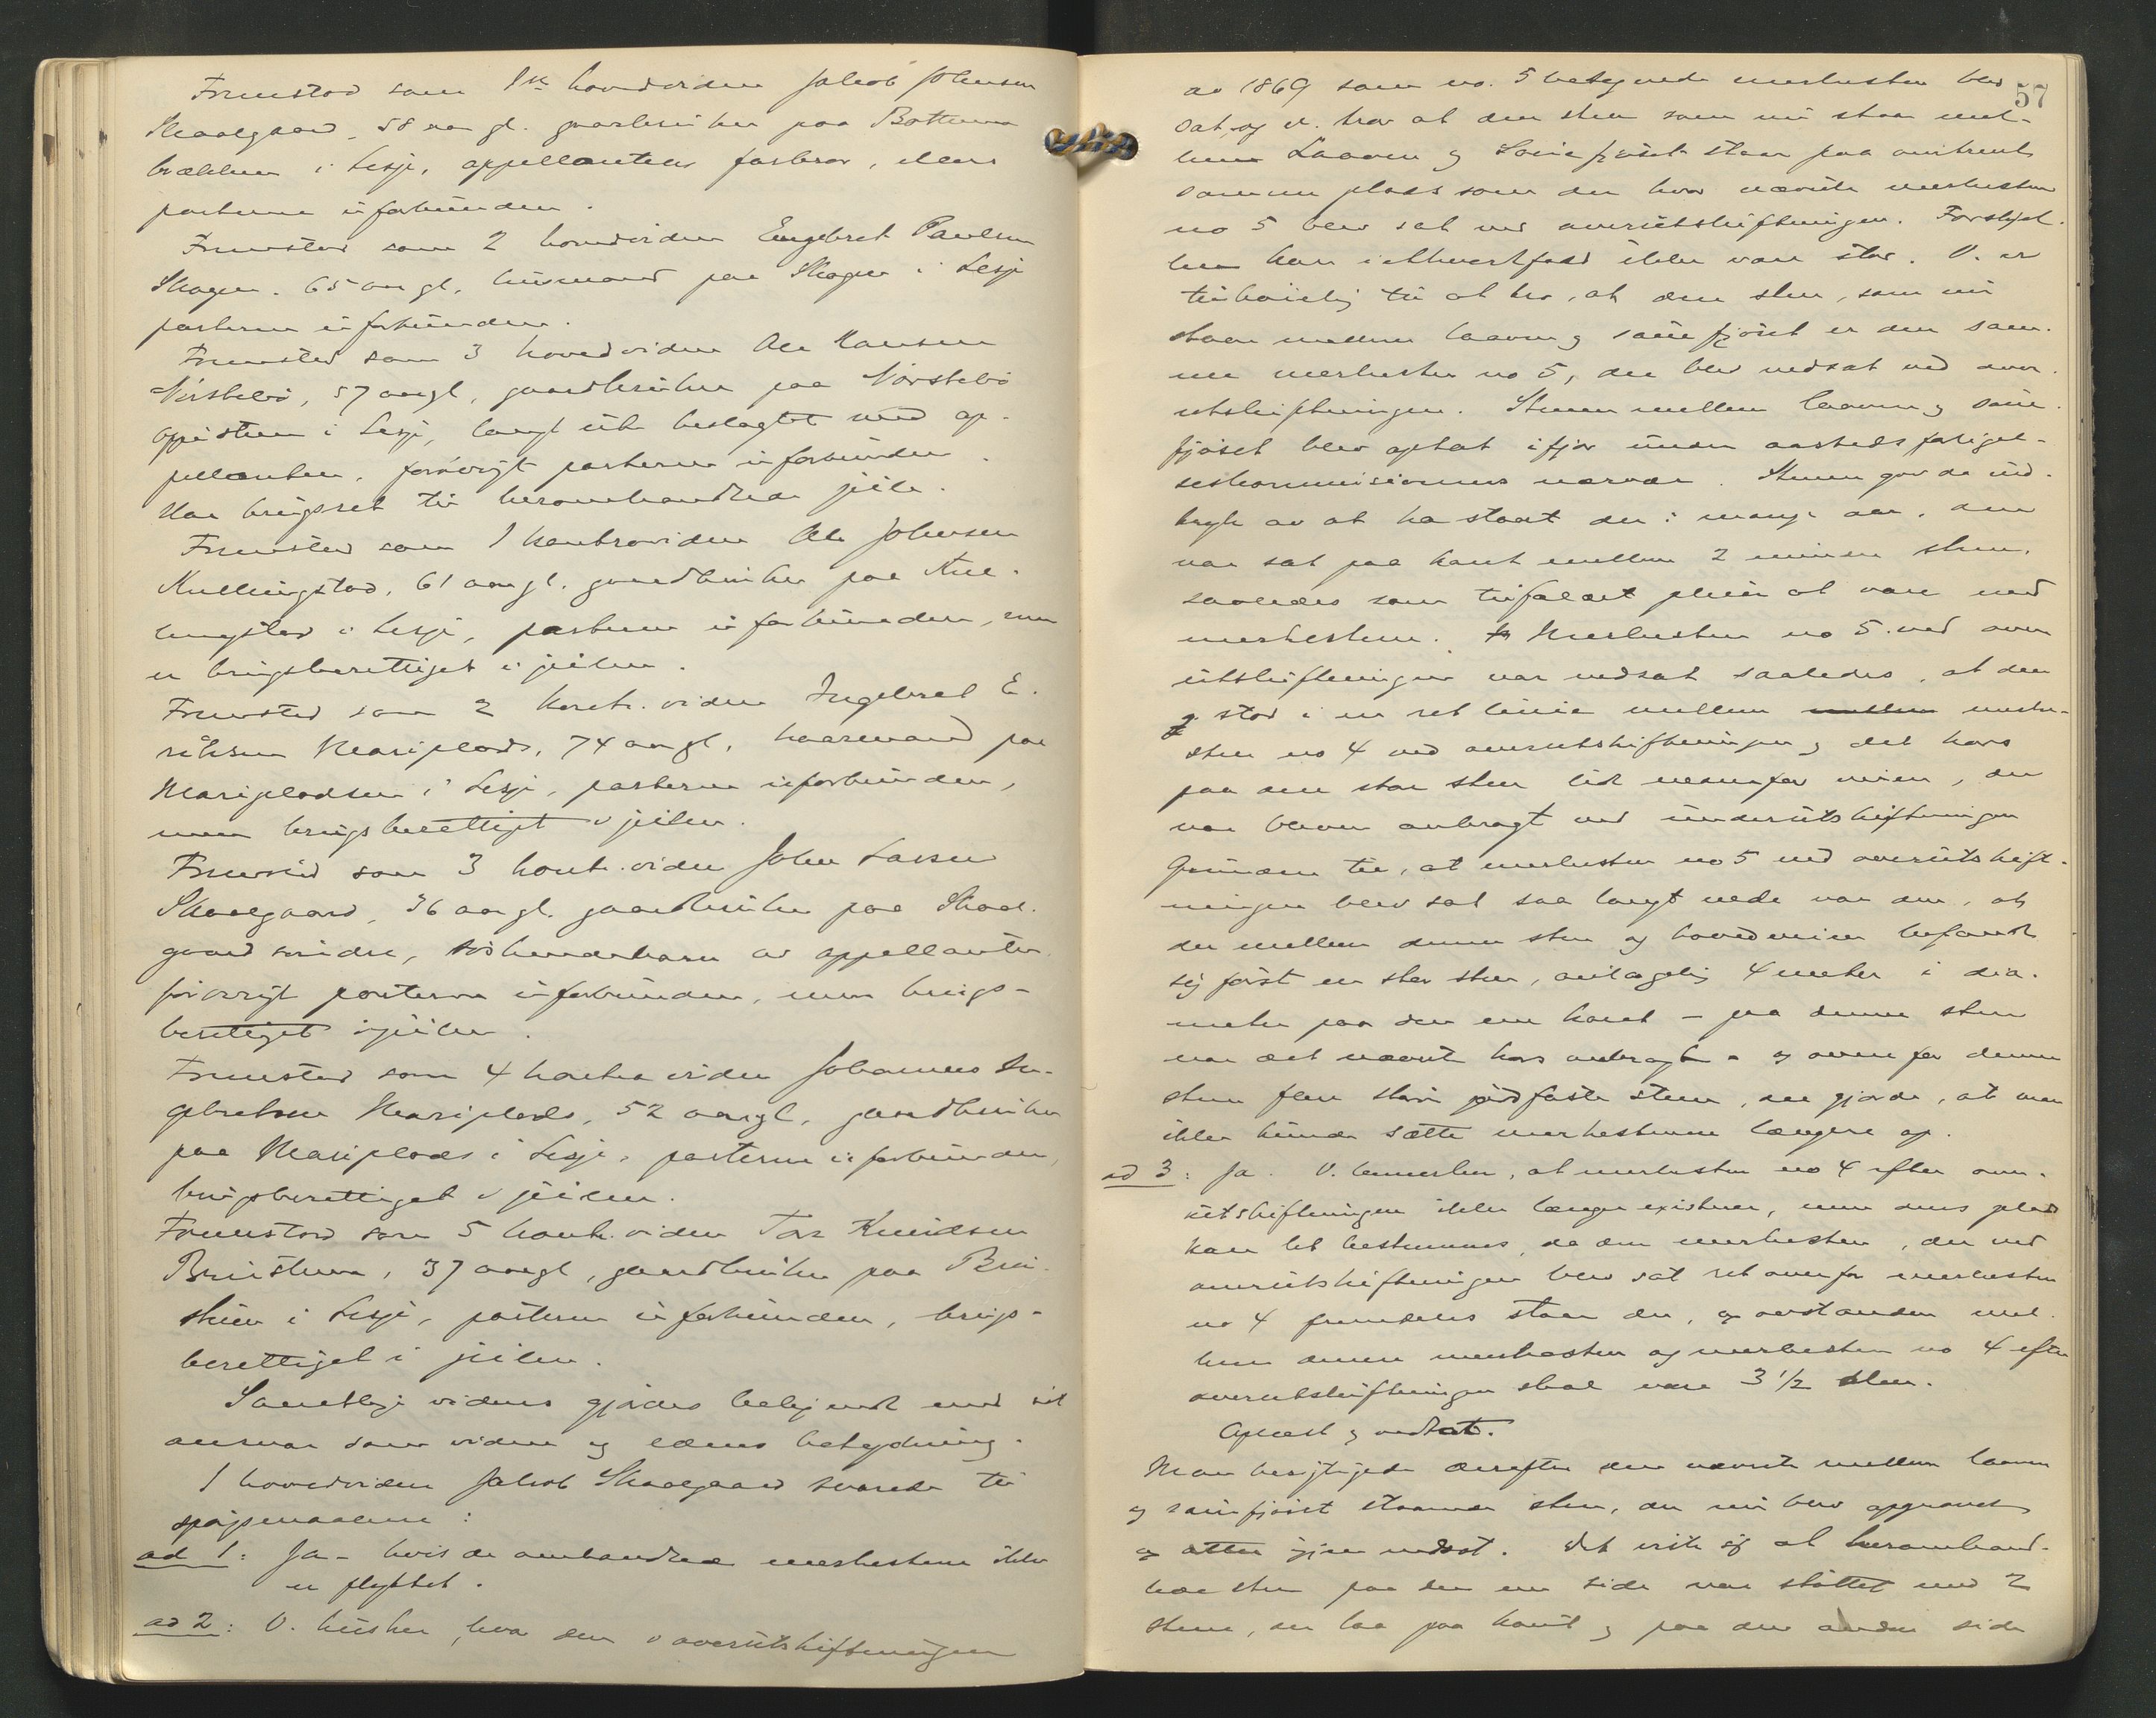 Fremstod som 1ste hovedvidne Jakob Johnsen
Skaalgaard, 58 aar gl. gaardbruker paa Bottem-
bakken i Lesje, appellantens farbror, ellers
parterne uforbunden.
Fremstod som 2 hovedvidne Engebret Paulsen
Skogen. 65 aar gl., husmand paa Skogen i Lesje
parterne uforbunden.
Fremstod som 3 hovedvidne Ole Hansen
Nørstebø, 57 aar gl, gaardbruker paa Nørstebø
i Lesje, langt ute beslagtet med ap-
pellanten, forøvrigt parterne uforbunden.
Har bruksret til heromhandlede jeile.
Fremstod som 1 kontravidne Ole Johnsen
Kullingstad, 61 aar gl. gaardbruker paa Kul-
lingstad i Lesje, parterne uforbunden, men
er bruksberettiget i jeilen.
Fremstod som 2 kontr. vidne Ingebret E-
riksen Mariplads, 74 aar gl, kaarmand paa
Maripladsen i Lesje, parterne uforbunden,
men bruksberettiget i jeilen.
Fremstod som 3 kontr. vidne John Larsen
Skaalgaard, 36 aar gl. gaardbruker paa Skaal-
gaard søndre, søskendebarn av appellanten
forøvrigt parterne uforbunden, men bruks-
berettiget i jeilen.
Fremstod som 4 kontra vidne Johannes In-
gebretsen Mariplads, 52 aar gl, gaardbruker
paa Mariplads i Lesje, parterne uforbunden,
bruksberettiget i jeilen.
Fremstod som 5 kontr. vidne Tor Knudsen
37 aar gl, gaardbruker paa
i Lesje, parterne uforbunden, bruks-
berettiget i jeilen.
Samtlige vidner gjordes bekjendt med sit
ansvar som vidne og edens betydning.
1 hovedvidne Jakob Skaalgaard svarede til
spørgsmaalene:
ad 1: Ja - hvis de omhandlede merkestene ikke
er flyttet.
ad 2: V. husker, hvor den v overutskiftningen
57
av 1869 som no. 5 betegnede merkesten blev
sat, og v. tror at den sten som nu staar mel-
lem Laaven og Sauefjøset staar paa omtrent
samme plads som den hvor nævnte merkesten
no 5 blev sat ved overutskiftningen. Forskjel-
len kan i ethvertfald ikke være stor. V. er
tilbøielig til at tro, at den sten, som nu
staar mellem laaven og sauefjøset er den sam-
me merkesten no 5, der blev nedsat ved over-
utskiftningen. Stenen mellem laaven og saue-
fjøset blev optat ifjor under aastedsforligel-
seskommisionens nærvær. Stenen gav da ind-
tryk av at ha staat der i mange aar, den
var sat paa kant mellem 2 mindre stene,
saaledes som tilfældet pleier at være med
merkestene. Merkesten no 5 ved over
utskiftningen var nedsat saaledes, at den
stod i en ret linie mellem mellem merke-
sten no 4 ved overutskiftningen og det kors
paa den store sten litt nedenfor veien, der
var bleven anbragt ved underutskiftningen
Grunden til, at merkesten no 5 ved overutskift-
ningen blev sat saa langt nede var den, at
der mellem denne sten og hovedveien befandt
sig først en stor sten, antagelig 4 meter i dia-
meter paa den ene kant - paa denne sten
var det nævnte kors anbragt - og ovenfor denne
sten flere store jordfaste stene, der gjorde, at man
ikke kunde sætte merkestenene længere op.
ad 3: Ja. V. bemerker, at merkesten no 4 efter over-
utskiftningen ikke længer existerer, men dens plads
kan let bestemmes, da den merkesten, der ved
overutskiftningen blev sat ret ovenfor merkesten
no 4 fremdeles staar der, og avstanden mel-
lem denne merkesten og merkesten no 4 efter
overutskiftningen skal være 3 1/2 alen.
Oplæst og vedtat.
Man besigtigede derefter den nævnte mellem laaven
og sauefjøset staaende sten, der nu blev opgravet
og atter igjen nedsat. Det viste sig at heromhand-
lede sten paa den ene side var støttet med 2
stene, der laa paa kant og paa den anden side